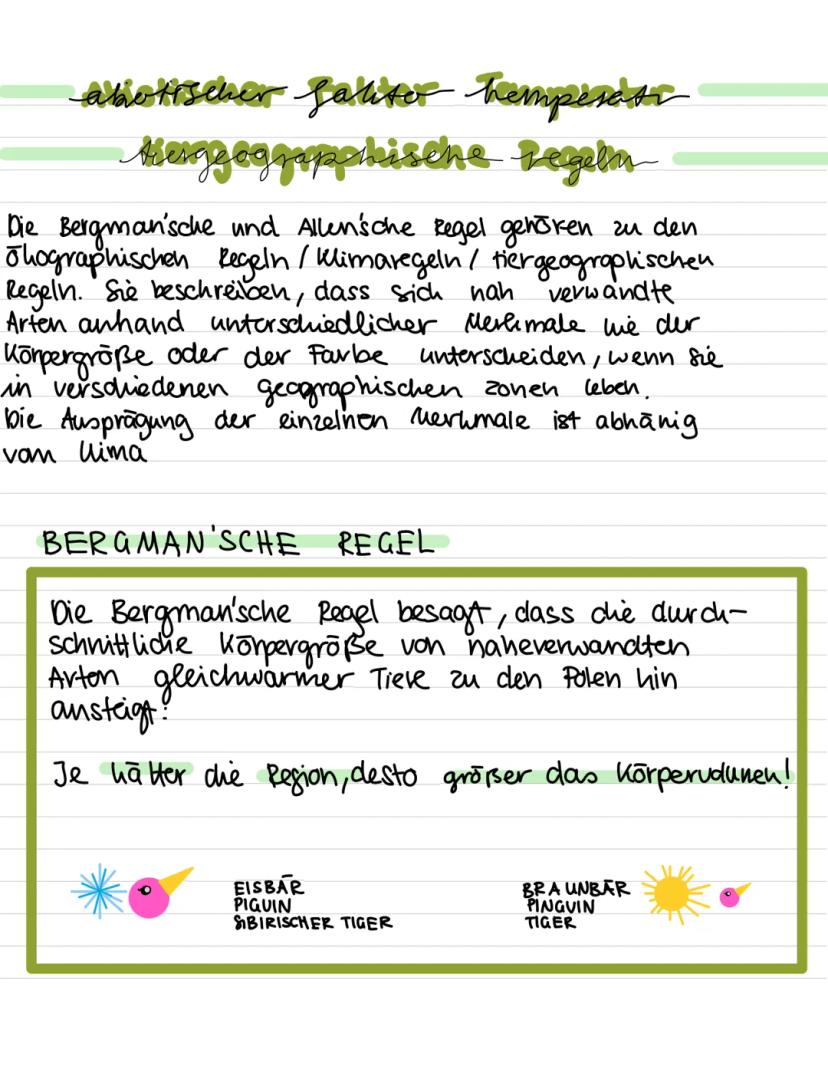 abiotischer Faktor Temperatur
tiergeographische Regeln
Die Bergman'sche und Allen'sche Regel gehören zu den
ökographischen Regeln / Klimaregeln / tiergeographischen
Regeln. Sie beschreiben, dass sich nah verwandte
Arten anhand unterschiedlicher Merkmale wie der
Körpergröße oder der Farbe unterscheiden, wenn sie
in verschiedenen geographischen Zonen leben.
Die Ausprägung der einzelnen Merkmale ist abhänig
vom Klima
BERGMAN'SCHE REGEL
Die Bergman'sche Regel besagt, dass die durch-
schnittliche Körpergröße von naheverwandten
Arten gleichwarmer Tiere zu den Polen hin
ansteigt:
Je kälter die Region, desto größer das Körpervolumen!
EISBÄR
PIGUIN
SIBIRISCHER TIGER
BRAUNBÄR
PINGUIN
TIGER